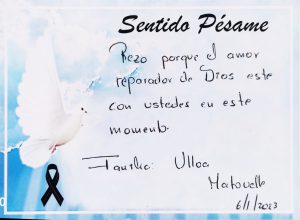 Sentido Pésame
Rezo porque el amor
reparador de Dios este
con ustedes en este
momento.
Familia: Ulloa
Matovelle
6/1/2023